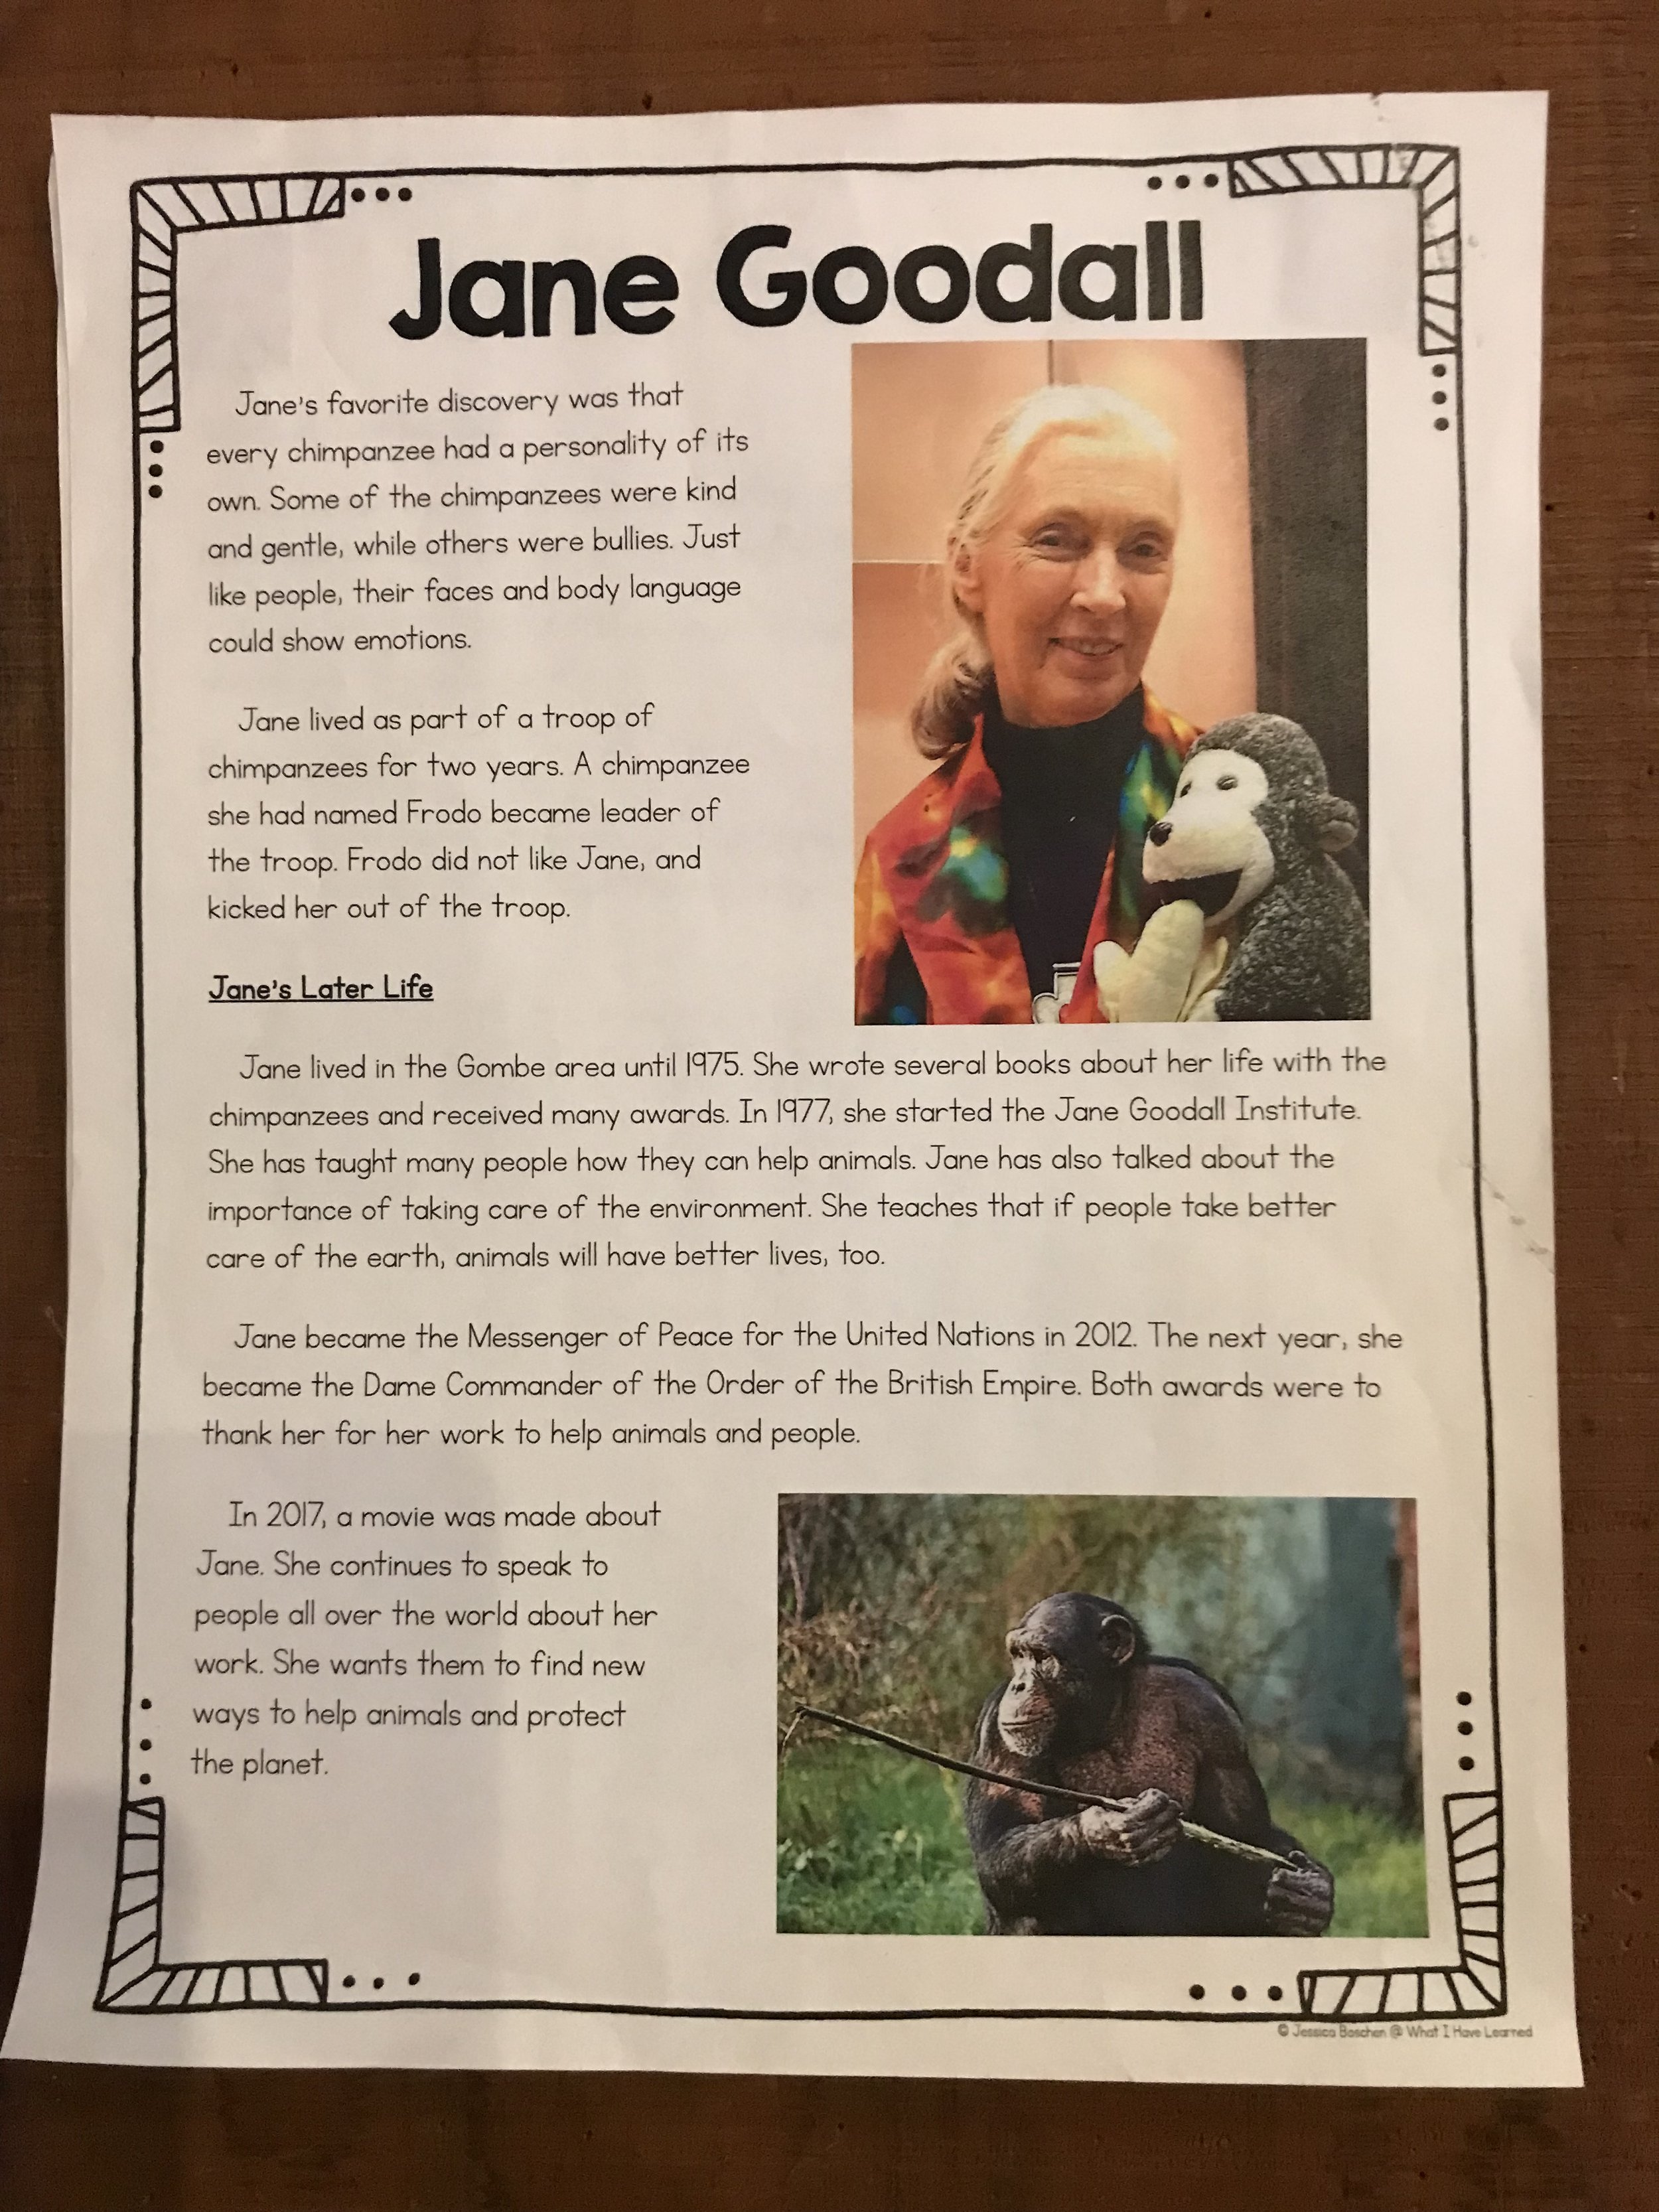 Jane Goodall
Jane's favorite discovery was that
every chimpanzee had a personality of its
own. Some of the chimpanzees were kind
and gentle, while others were bullies. Just
like people, their faces and body language
could show emotions.
Jane lived as part of a troop of
chimpanzees for two years. A chimpanzee
she had named Frodo became leader of
the troop. Frodo did not like Jane, and
kicked her out of the troop.
Jane's Later Life
Jane lived in the Gombe area until 1975. She wrote several books about her life with the
chimpanzees and received many awards. In 1977, she started the Jane Goodall Institute.
She has taught many people how they can help animals. Jane has also talked about the
importance of taking care of the environment. She teaches that if people take better
care of the earth, animals will have better lives, too.
Jane became the Messenger of Peace for the United Nations in 2012. The next year, she
became the Dame Commander of the Order of the British Empire. Both awards were to
thank her for her work to help animals and people.
In 2017, a movie was made about
Jane. She continues to speak to
people all over the world about her
work. She wants them to find new
ways to help animals and protect
the planet.
© Jessica Boschen @ What I Have Learned